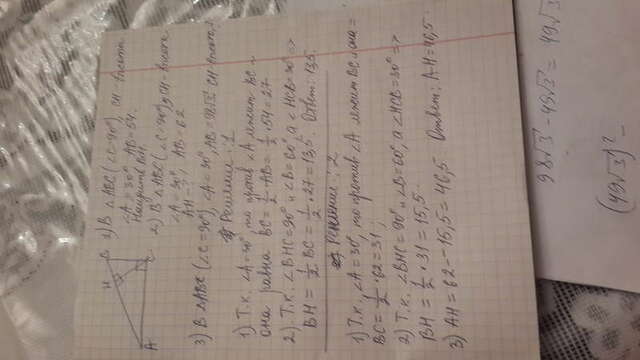 A
H
B
C
1) В △ABC (∠C=90°), CH - высота
∠A = 30°, AB = 54.
Найдите BH
2) В △ABC (∠C=90°), CH - высота
∠A = 30° AB = 62
AH = ?
3) В △ABC (∠C=90°), ∠A = 30°, AB = 98√3 CH-высота.
Решение: 1
1) Т.к. ∠A = 30°, то против ∠A лежит BC и
она равна BC = 1/2 · AB = 1/2 · 54 = 27
2) Т.к. ∠BHC = 90° и ∠B = 60°, а ∠HCB = 30° =>
BH = 1/2 BC = 1/2 · 27 = 13,5. Ответ: 13,5.
Решение: 2
1) Т.к., ∠A = 30°, то против ∠A лежит BC и она =
BC = 1/2 · 62 = 31;
2) Т.к. ∠BHC = 90° и ∠B = 60°, а ∠HCB = 30° =>
BH = 1/2 · 31 = 15,5.
3) AH = 62 - 15,5 = 46,5 Ответ: AH = 46,5.
98√3 - 49√3 = 49√3
(49√3)² -